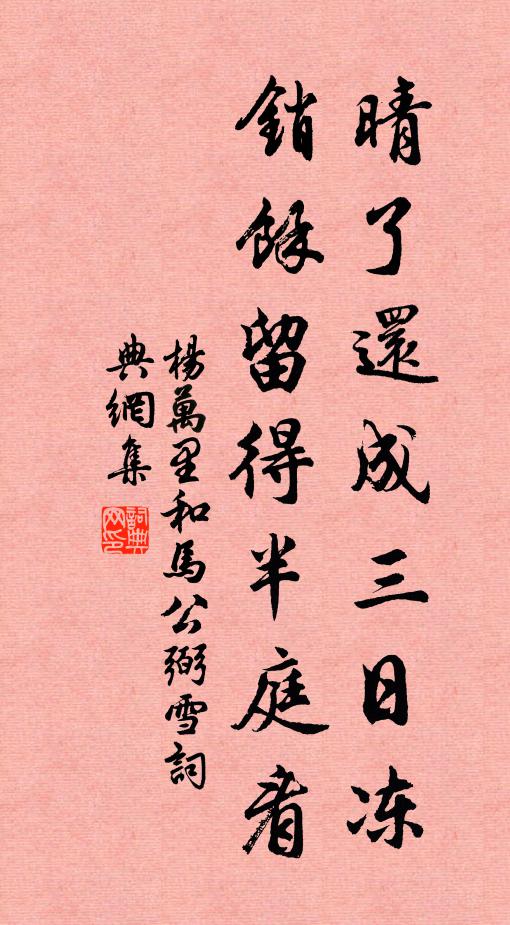 晴了還成三日冻
銷餘留得半庭看
楊萬里和馬公弼雪詞
典網集
詞典
网印